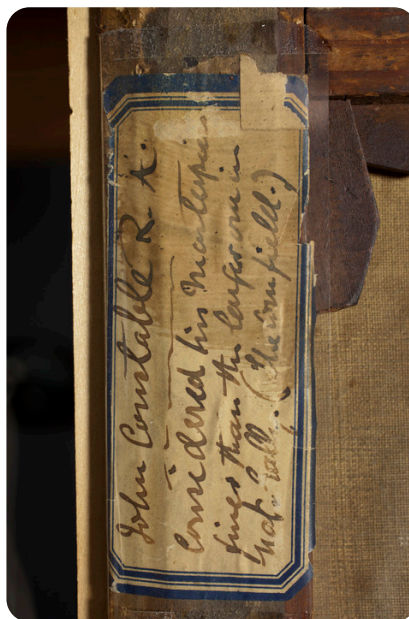 John Constable R. A.
Considered his Masterpiece
finer than the Cenfaron in
Nat. Gall. (The Cornfield.)